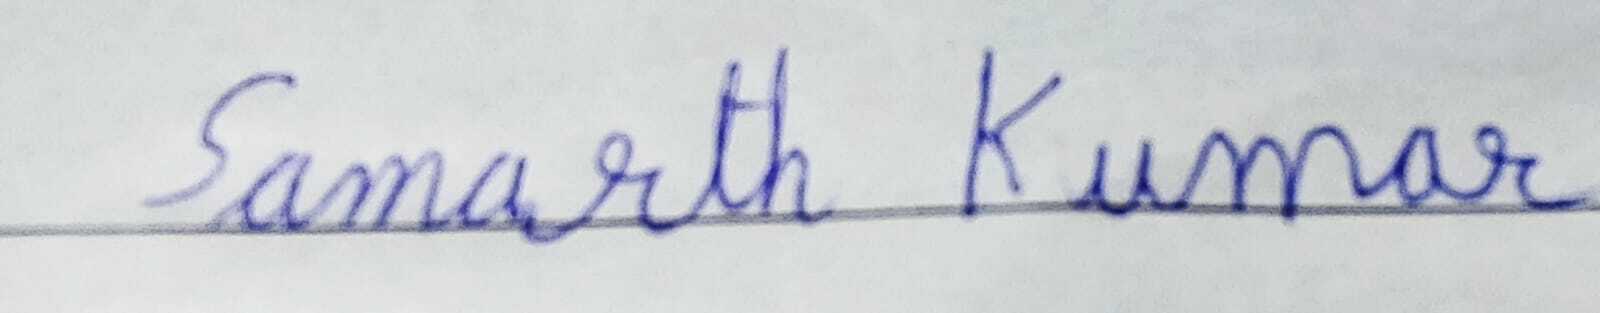 Samarth Kumar